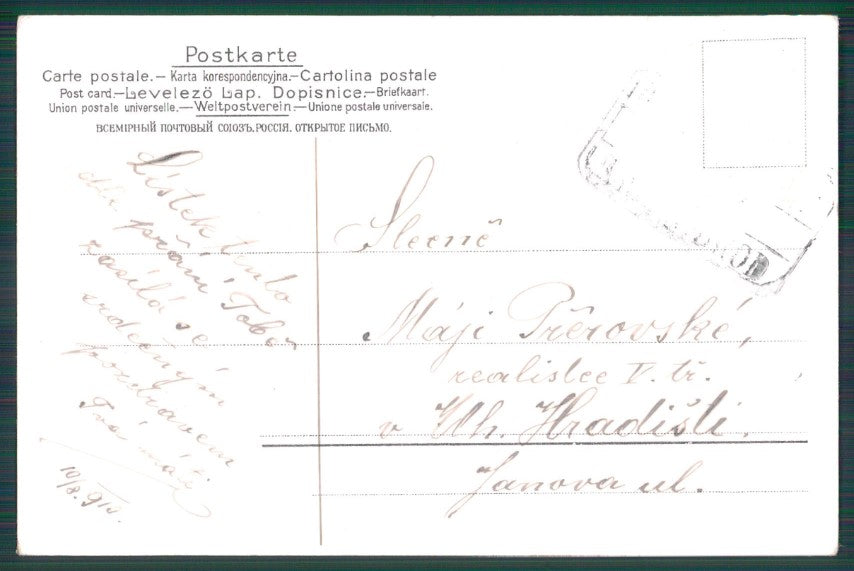 Postkarte
Carte postale.— Karta korespondencyjna.—Cartolina postale
Post card.—Levelező Lap. Dopisnice.—Briefkaart.
Union postale universelle.—Weltpostverein.—Unione postale universale.
ВСЕМІРНЫЙ ПОЧТОВЫЙ СОЮЗЪ. РОССІЯ. ОТКРЫТОЕ ПИСЬМО.
Lístek tento
dle přání Tobě
zasílá se
srdečným
pozdravem
Tvá máti.
10/8. 910.
Slečně
Máji Přerovské,
realistce V. tř.
v Uh. Hradišti.
Janova ul.